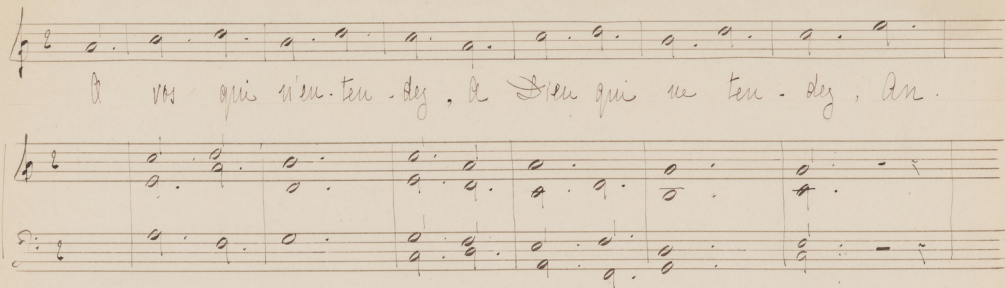 A vos qui n'en-ten-dez, A Dieu qui ne ten-dez, An.